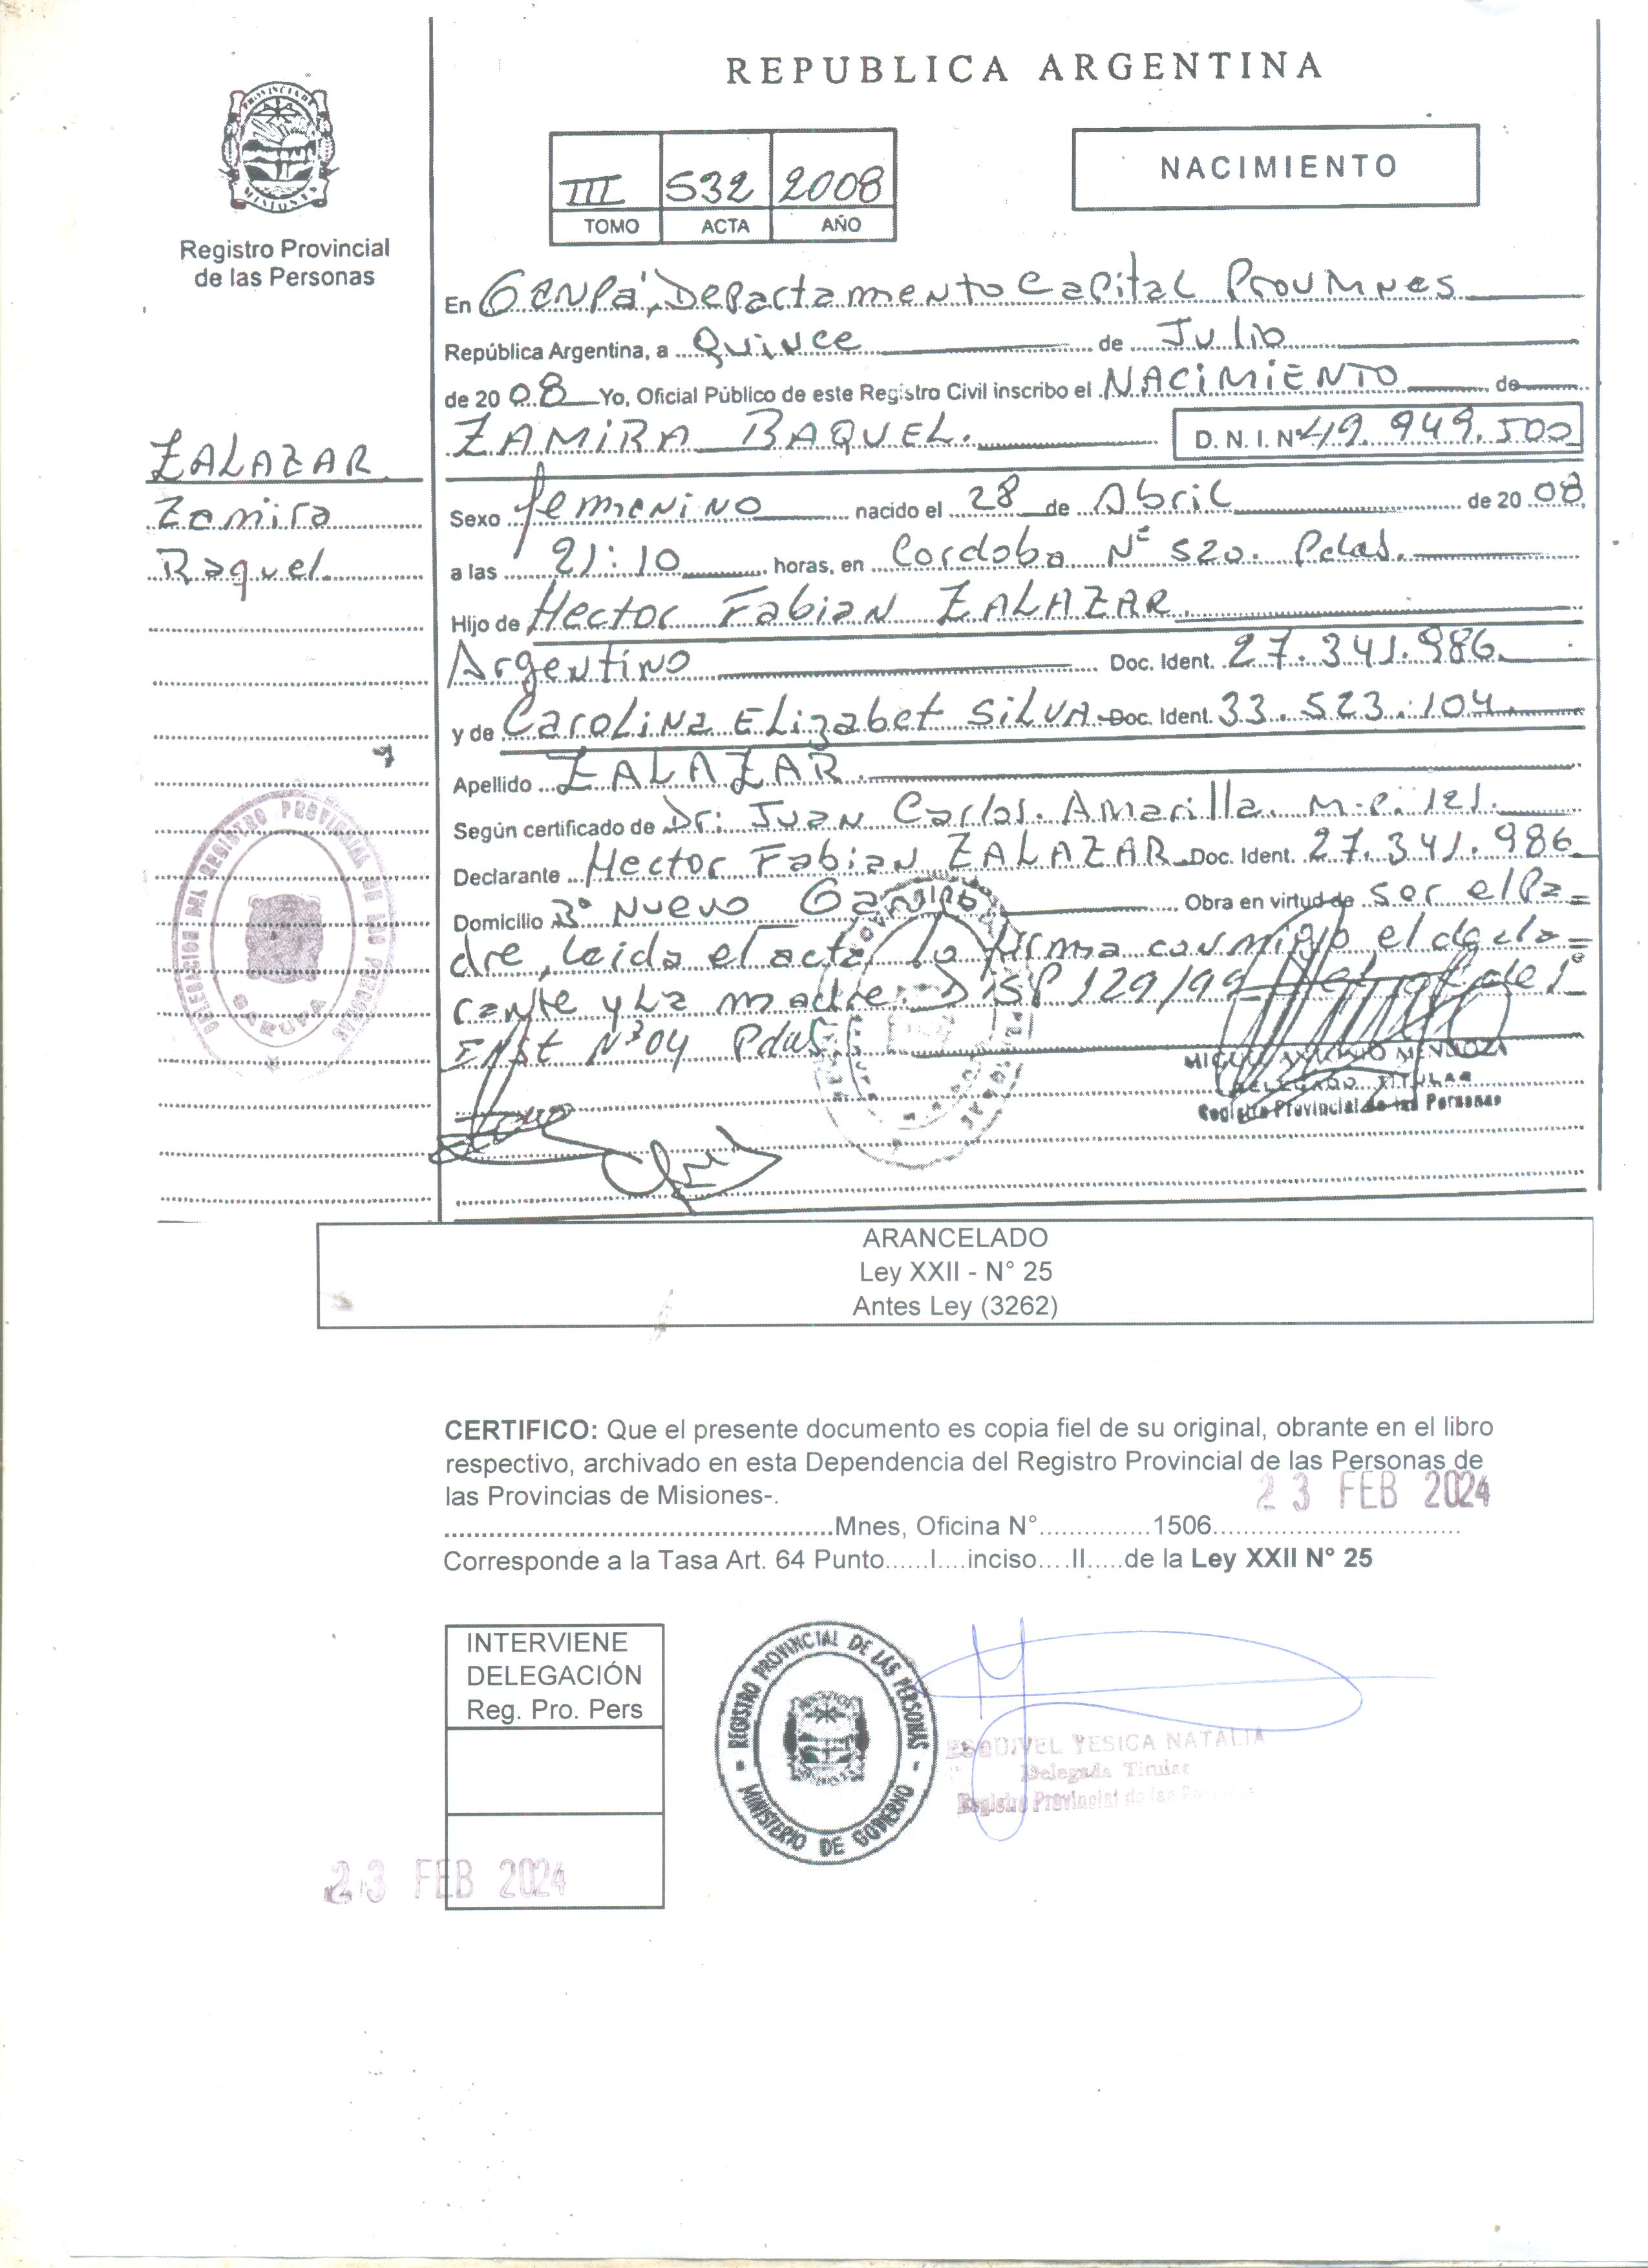 REPUBLICA ARGENTINA
PROVINCIA DE
MISIONES
Registro Provincial
de las Personas
III 532 2008
TOMO ACTA AÑO
NACIMIENTO
En Garupá, Departamento Capital Prov Mnes
República Argentina, a Quince de Julio
de 2008 Yo, Oficial Público de este Registro Civil inscribo el NACIMIENTO de
ZAMIRA RAQUEL. D.N.I. Nº 49.949.500
ZALAZAR
Zamira
Raquel
Sexo femenino nacido el 28 de Abril de 2008
a las 21:10 horas, en Cordoba Nº 520. Pdas.
Hijo de Hector Fabian ZALAZAR
Argentino Doc. Ident. 27.341.986
y de Carolina Elizabet SILVA Doc. Ident. 33.523.104
Apellido ZALAZAR
Según certificado de Dr: Juan Carlos Amarilla. M.P. 121.
Declarante Hector Fabian ZALAZAR Doc. Ident. 27.341.986
Domicilio Bº Nuevo Garupá Obra en virtud de ser el Pa=
dre, leida el acta la firma conmigo el decla=
rante y la madre. DISP 129/99
Nº 04 Pdas.
MIGUEL ANTONIO MENDOZA
DELEGADO TITULAR
Registro Provincial de las Personas
DELEGACION DEL REGISTRO PROVINCIAL DE LAS PERSONAS
GARUPA
ARANCELADO
Ley XXII - N° 25
Antes Ley (3262)
CERTIFICO: Que el presente documento es copia fiel de su original, obrante en el libro
respectivo, archivado en esta Dependencia del Registro Provincial de las Personas de
las Provincias de Misiones-.
23 FEB 2024
Mnes, Oficina N° 1506
Corresponde a la Tasa Art. 64 Punto......I....inciso....II.....de la Ley XXII N° 25
INTERVIENE
DELEGACIÓN
Reg. Pro. Pers
23 FEB 2024
REGISTRO PROVINCIAL DE LAS PERSONAS
MINISTERIO DE GOBIERNO
ESQUIVEL YESICA NATALIA
Delegada Titular
Registro Provincial de las Personas